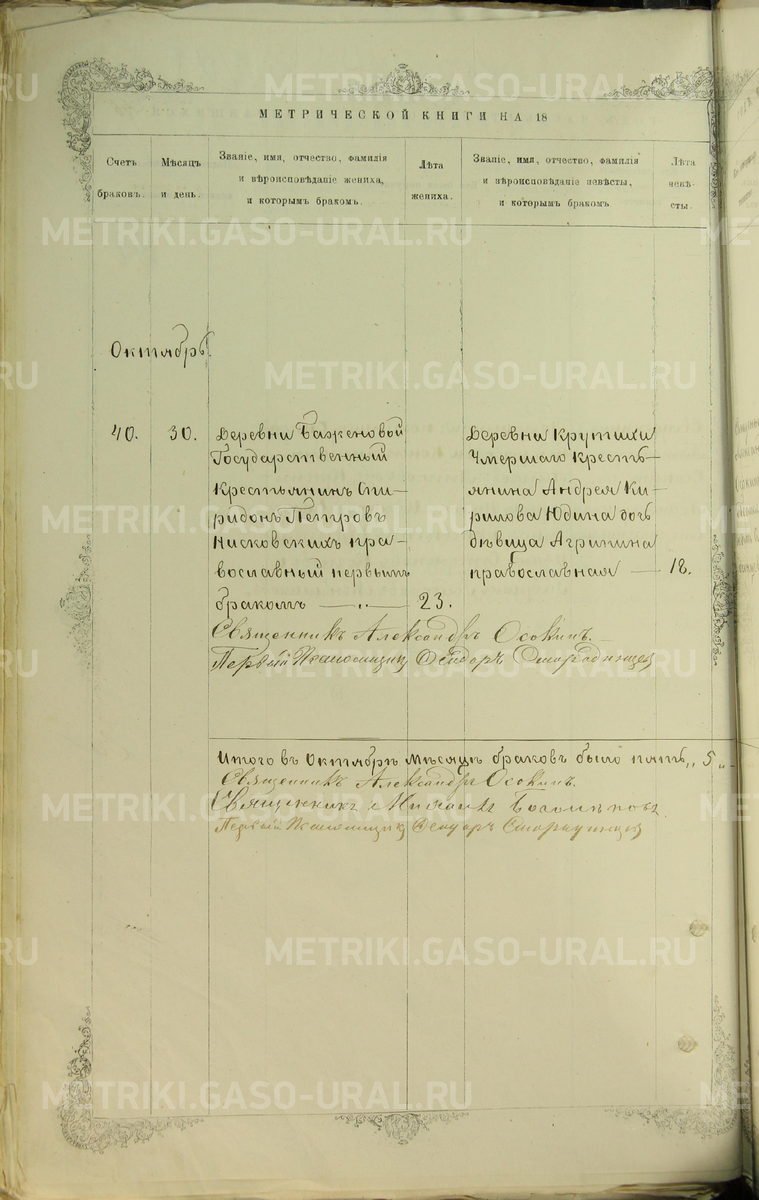 МЕТРИЧЕСКОЙ КНИГИ НА 18
Счетъ браковъ.
Мѣсяцъ и день.
Званіе, имя, отчество, фамилія и вѣроисповѣданіе жениха, и которымъ бракомъ.
Лѣта жениха.
Званіе, имя, отчество, фамилія и вѣроисповѣданіе невѣсты, и которымъ бракомъ.
Лѣта невѣсты.
Октябрь.
40.
30.
Деревни Баженовой
Государственный
крестьянинъ Спи-
ридонъ Петровъ
Нисковскихъ пра-
вославный первымъ
бракомъ — „ — 23.
Деревни Крутихи
Умершаго кресть-
янина Андрея Ки-
рилова Юдина дочь
дѣвица Агрипина
православная — 18.
Священникъ Александръ Осокинъ.
Первый Псаломщикъ Ѳеодоръ
Итого въ Октябрѣ мѣсяцѣ браковъ было пять „ 5 „
Священникъ Александръ Осокинъ.
Священникъ
Первый Псаломщикъ Ѳеодоръ
METRIKI.GASO-URAL.RU